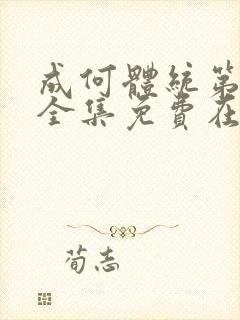 成何體統第
全集免費在
荀志